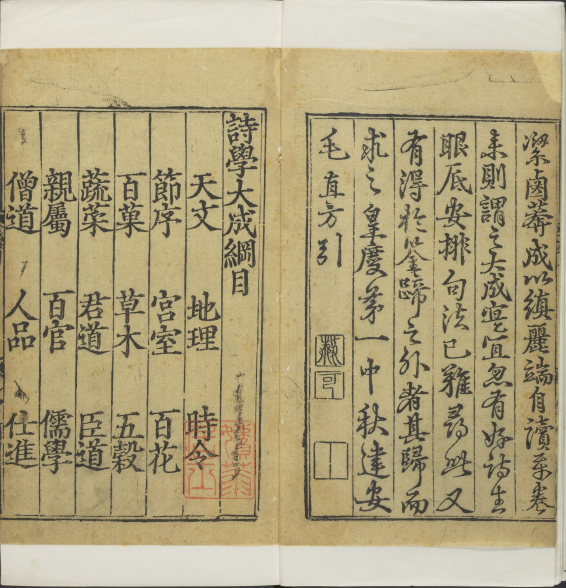 潔鹵莽成以縝麗端自讀萬卷
來則謂之大成寔宜忽有好詩生
眼底安排句法已難尋此又
有得於筌蹄之外者其歸而
求之皇慶第一中秋建安
毛直方引
詩學大成綱目
天文 地理 時令
節序 宮室 百花
百菓 草木 五穀
蔬菜 君道 臣道
親屬 百官 儒學
僧道 人品 仕進